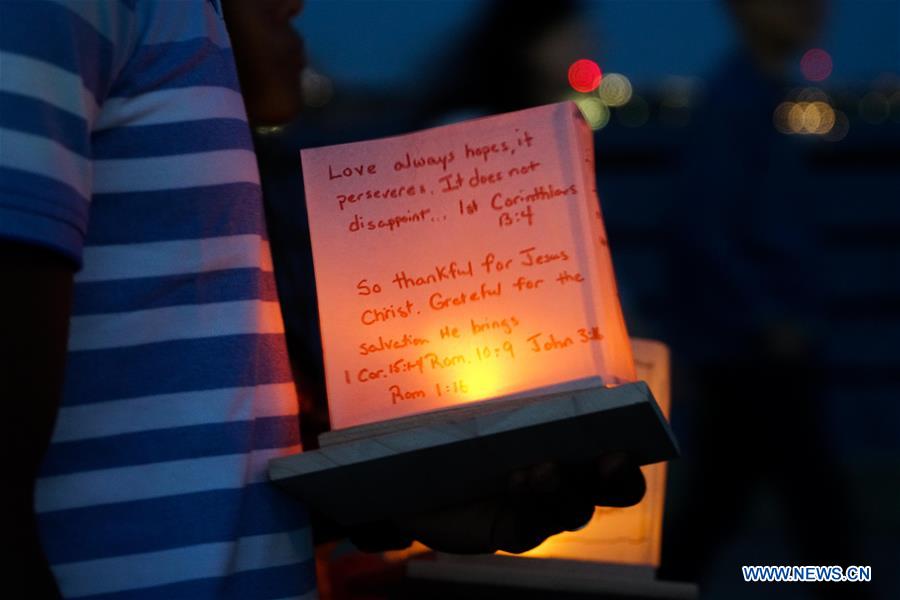 Love always hopes, it
perseveres. It does not
disappoint... 1st Corinthians
13:4
So thankful for Jesus
Christ. Grateful for the
salvation He brings
1 Cor. 15:1-4 Rom. 10:9 John 3:16
Rom 1:16
WWW.NEWS.CN